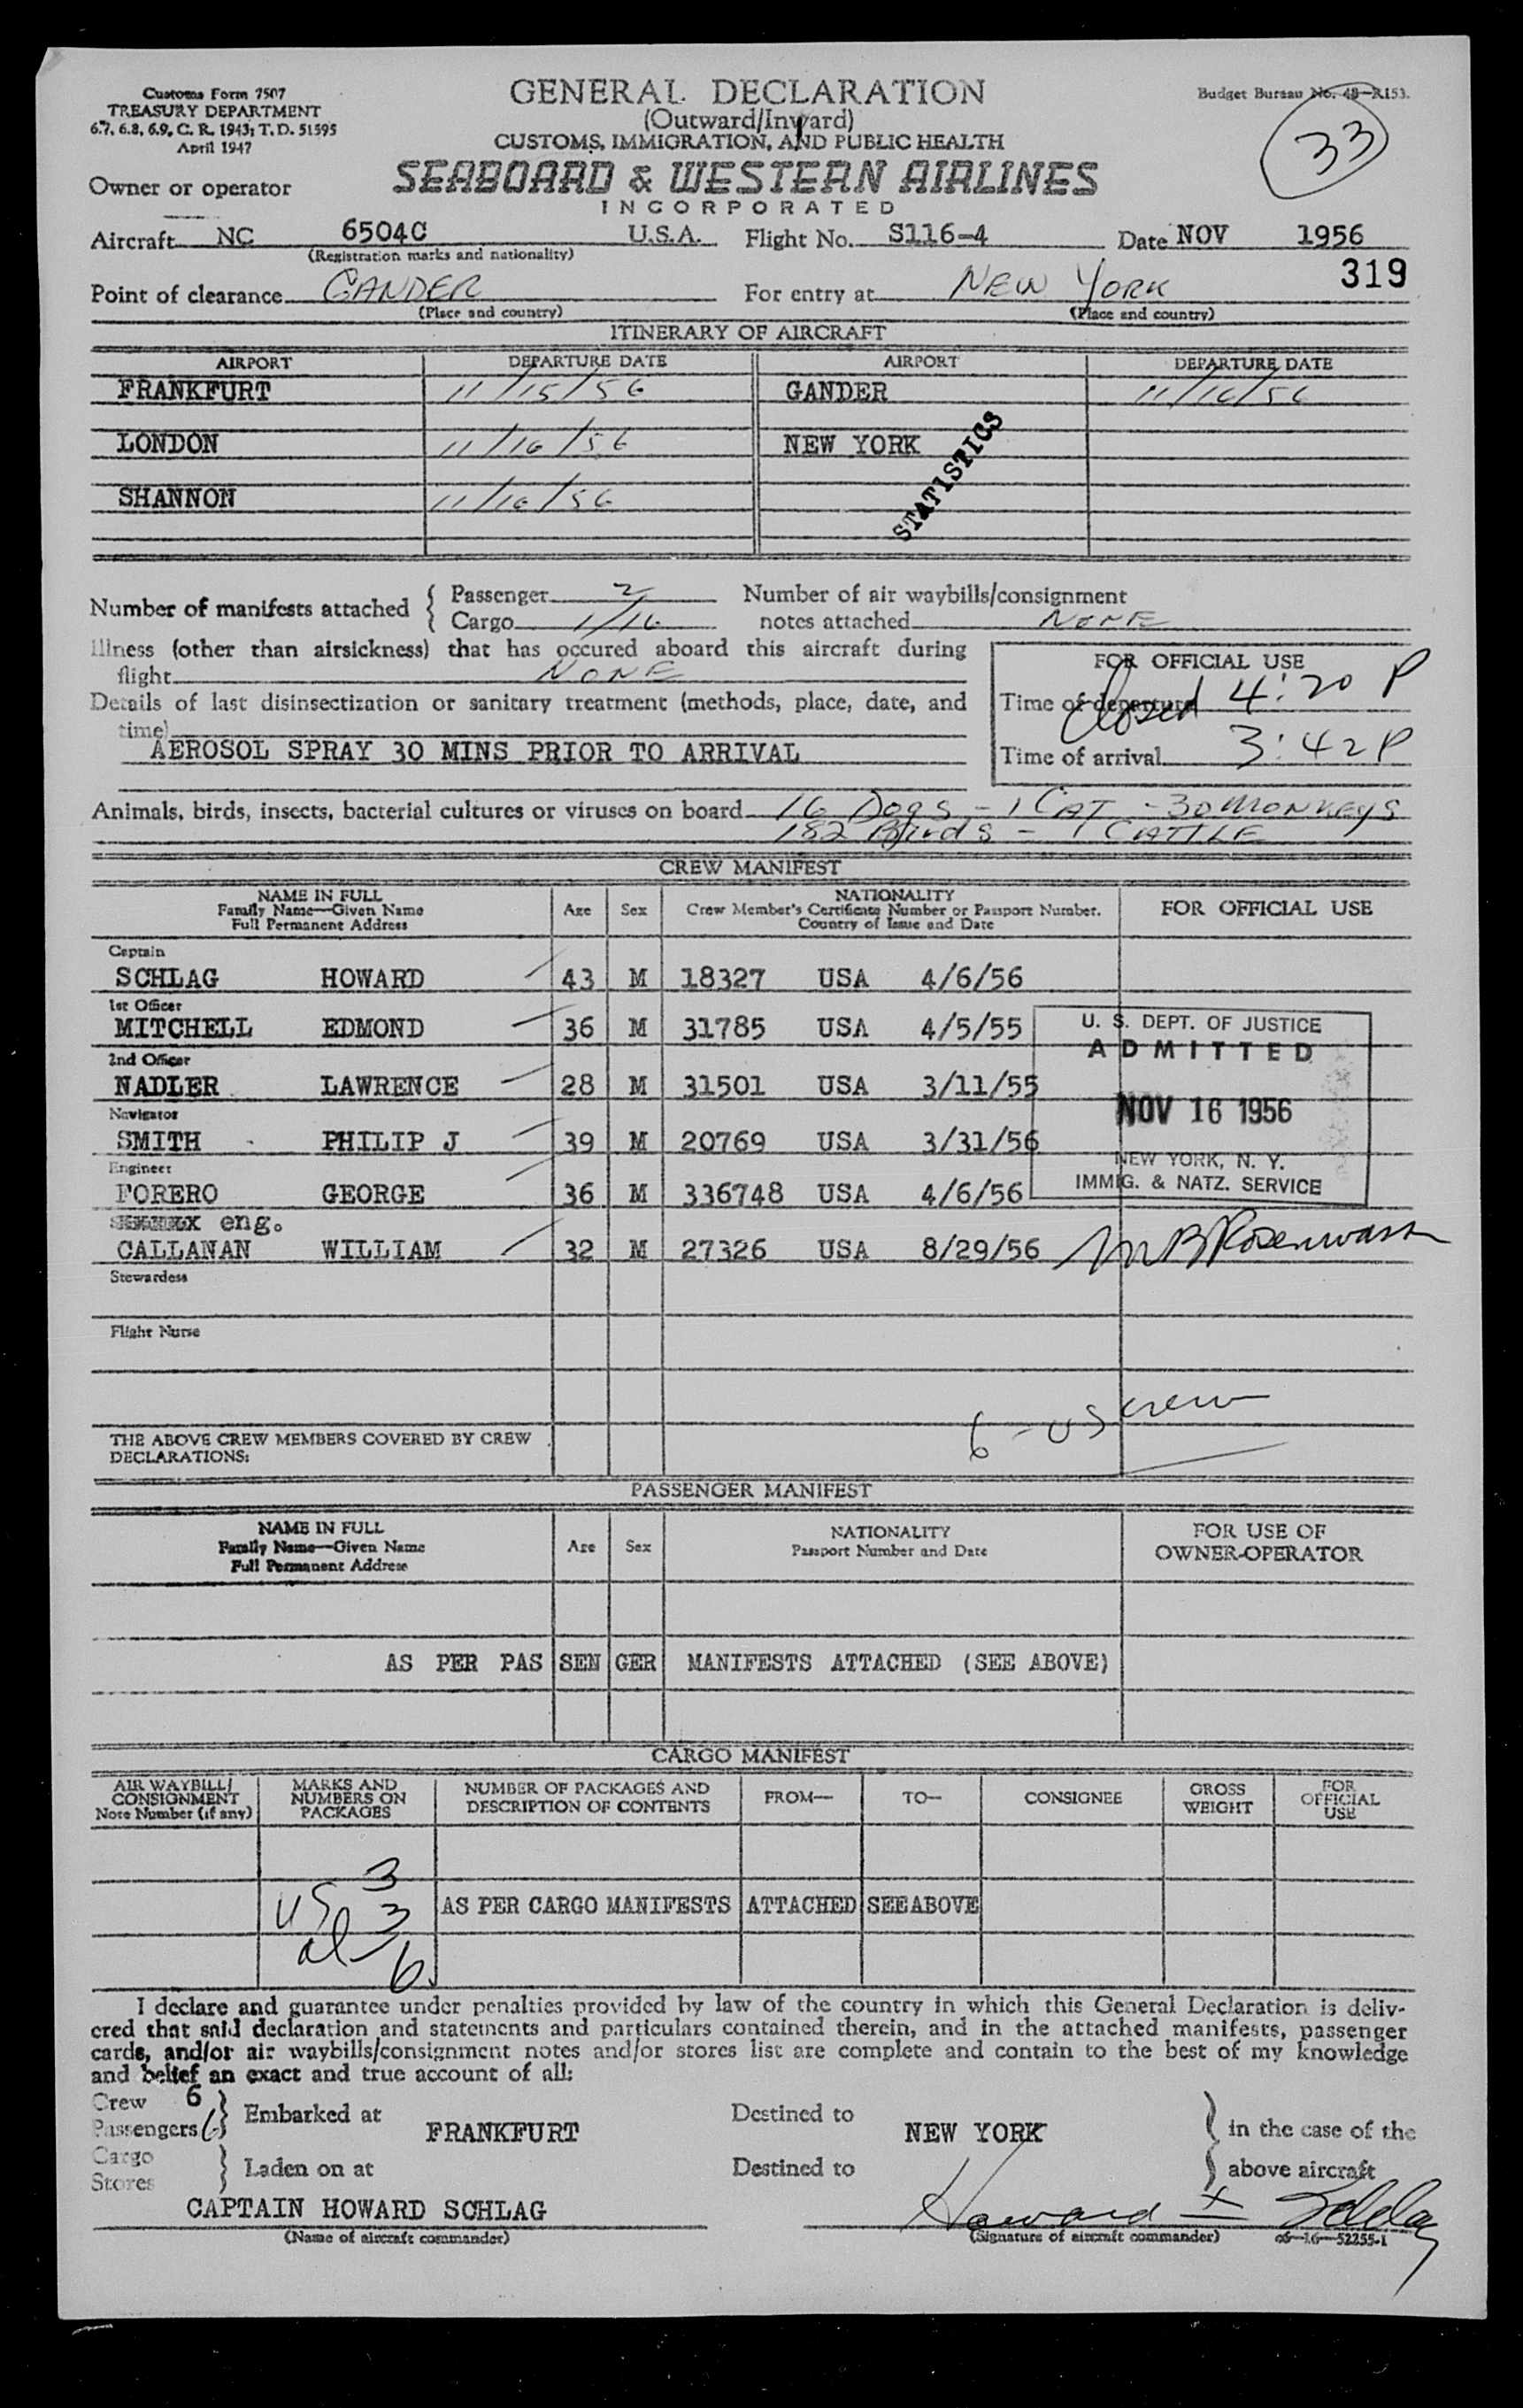 Customs Form 7507
TREASURY DEPARTMENT
6.7, 6.8, 6.9, C. R. 1943; T. D. 51595
April 1947
GENERAL DECLARATION
(Outward/Inward)
CUSTOMS, IMMIGRATION, AND PUBLIC HEALTH
Budget Bureau No. 48-R153.
33
Owner or operator
SEABOARD & WESTERN AIRLINES
INCORPORATED
Aircraft NC 6504C U.S.A. Flight No. S116-4 Date NOV 1956
(Registration marks and nationality)
319
Point of clearance GANDER For entry at NEW YORK
(Place and country) (Place and country)
ITINERARY OF AIRCRAFT
AIRPORT DEPARTURE DATE AIRPORT DEPARTURE DATE
FRANKFURT 11/15/56 GANDER 11/16/56
LONDON 11/16/56 NEW YORK
SHANNON 11/16/56
STATISTICS
Number of manifests attached { Passenger 2 Number of air waybills/consignment
Cargo 1/16 notes attached NONE
Illness (other than airsickness) that has occured aboard this aircraft during
flight NONE
FOR OFFICIAL USE
Details of last disinsectization or sanitary treatment (methods, place, date, and
time)
Time of departure Closed 4:20 P
AEROSOL SPRAY 30 MINS PRIOR TO ARRIVAL
Time of arrival 3:42 P
Animals, birds, insects, bacterial cultures or viruses on board 16 Dogs - 1 CAT - 30 MONKEYS
182 Birds - 1 CATTLE
CREW MANIFEST
NAME IN FULL
Family Name—Given Name
Full Permanent Address
Age Sex
NATIONALITY
Crew Member's Certificate Number or Passport Number.
Country of Issue and Date
FOR OFFICIAL USE
Captain
SCHLAG HOWARD 43 M 18327 USA 4/6/56
1st Officer
MITCHELL EDMOND 36 M 31785 USA 4/5/55
2nd Officer
NADLER LAWRENCE 28 M 31501 USA 3/11/55
Navigator
SMITH PHILIP J 39 M 20769 USA 3/31/56
Engineer
FORERO GEORGE 36 M 336748 USA 4/6/56
eng.
CALLANAN WILLIAM 32 M 27326 USA 8/29/56
U. S. DEPT. OF JUSTICE
ADMITTED
NOV 16 1956
NEW YORK, N. Y.
IMMIG. & NATZ. SERVICE
Stewardess
Flight Nurse
6 - US crew
THE ABOVE CREW MEMBERS COVERED BY CREW
DECLARATIONS:
PASSENGER MANIFEST
NAME IN FULL
Family Name—Given Name
Full Permanent Address
Age Sex
NATIONALITY
Passport Number and Date
FOR USE OF
OWNER-OPERATOR
AS PER PAS SEN GER MANIFESTS ATTACHED (SEE ABOVE)
CARGO MANIFEST
AIR WAYBILL/
CONSIGNMENT
Note Number (if any)
MARKS AND
NUMBERS ON
PACKAGES
NUMBER OF PACKAGES AND
DESCRIPTION OF CONTENTS
FROM— TO— CONSIGNEE
GROSS
WEIGHT
FOR
OFFICIAL
USE
3
US 3
al 6
AS PER CARGO MANIFESTS ATTACHED SEE ABOVE
I declare and guarantee under penalties provided by law of the country in which this General Declaration is deliv-
ered that said declaration and statements and particulars contained therein, and in the attached manifests, passenger
cards, and/or air waybills/consignment notes and/or stores list are complete and contain to the best of my knowledge
and belief an exact and true account of all:
Crew 6
Passengers 6 } Embarked at FRANKFURT Destined to NEW YORK } in the case of the
Cargo
Stores } Laden on at Destined to } above aircraft
CAPTAIN HOWARD SCHLAG Howard
(Name of aircraft commander) (Signature of aircraft commander) 06—16—52255-1